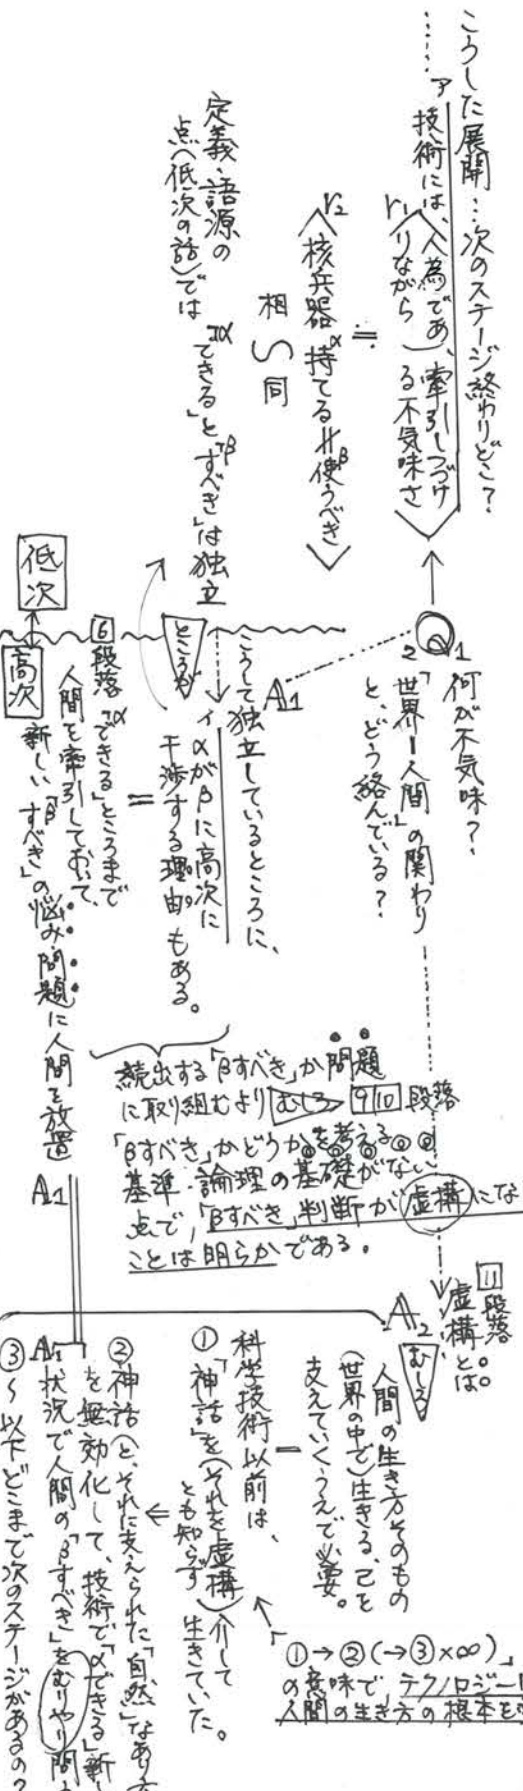 こうした展開…次のステージ終わりどこ？
……ア
技術には、人為であ、牽引しつづけ
r₁りながら る不気味さ
≒
r₂核兵器α持てる≠β使うべき
相 同
定義・語源の
点(低次の話)では
「αできる」と「βすべき」は独立
Q
1 何が不気味？
2 「世界ー人間」の関わり
と、どう絡んでいる？
A1
こうして独立しているところに、
ところが
イ αがβに高次に
干渉する理由もある。
＝
6段落「αできる」ところまで
人間を牽引しておいて、
新しい「βすべき」の悩み・問題に人間を放置
低次
高次
続出する「βすべき」か問題
に取り組むより むしろ 9 10 段落
「βすべき」かどうかを考える
基準・論理の基礎がない
点で、「βすべき」判断が虚構にな
ことは明らかである。
A1
11段落
虚構とは
A2
むしろ
人間の生き方そのもの
(世界の中で)生きる、己を
支えていくうえで必要。
＝
科学技術以前は、
①「神話」を(それを虚構)介して
とも知らず 生きていた。
②神話(と、それに支えられた「自然」なあり方
を無効化して、技術で「αできる」新し
A1状況で人間の「βすべき」をむりやり問
③〜以下どこまで次のステージがあるの？
「①→②(→③×∞)」
の意味で、テクノロジー
の人間の生き方の根本を